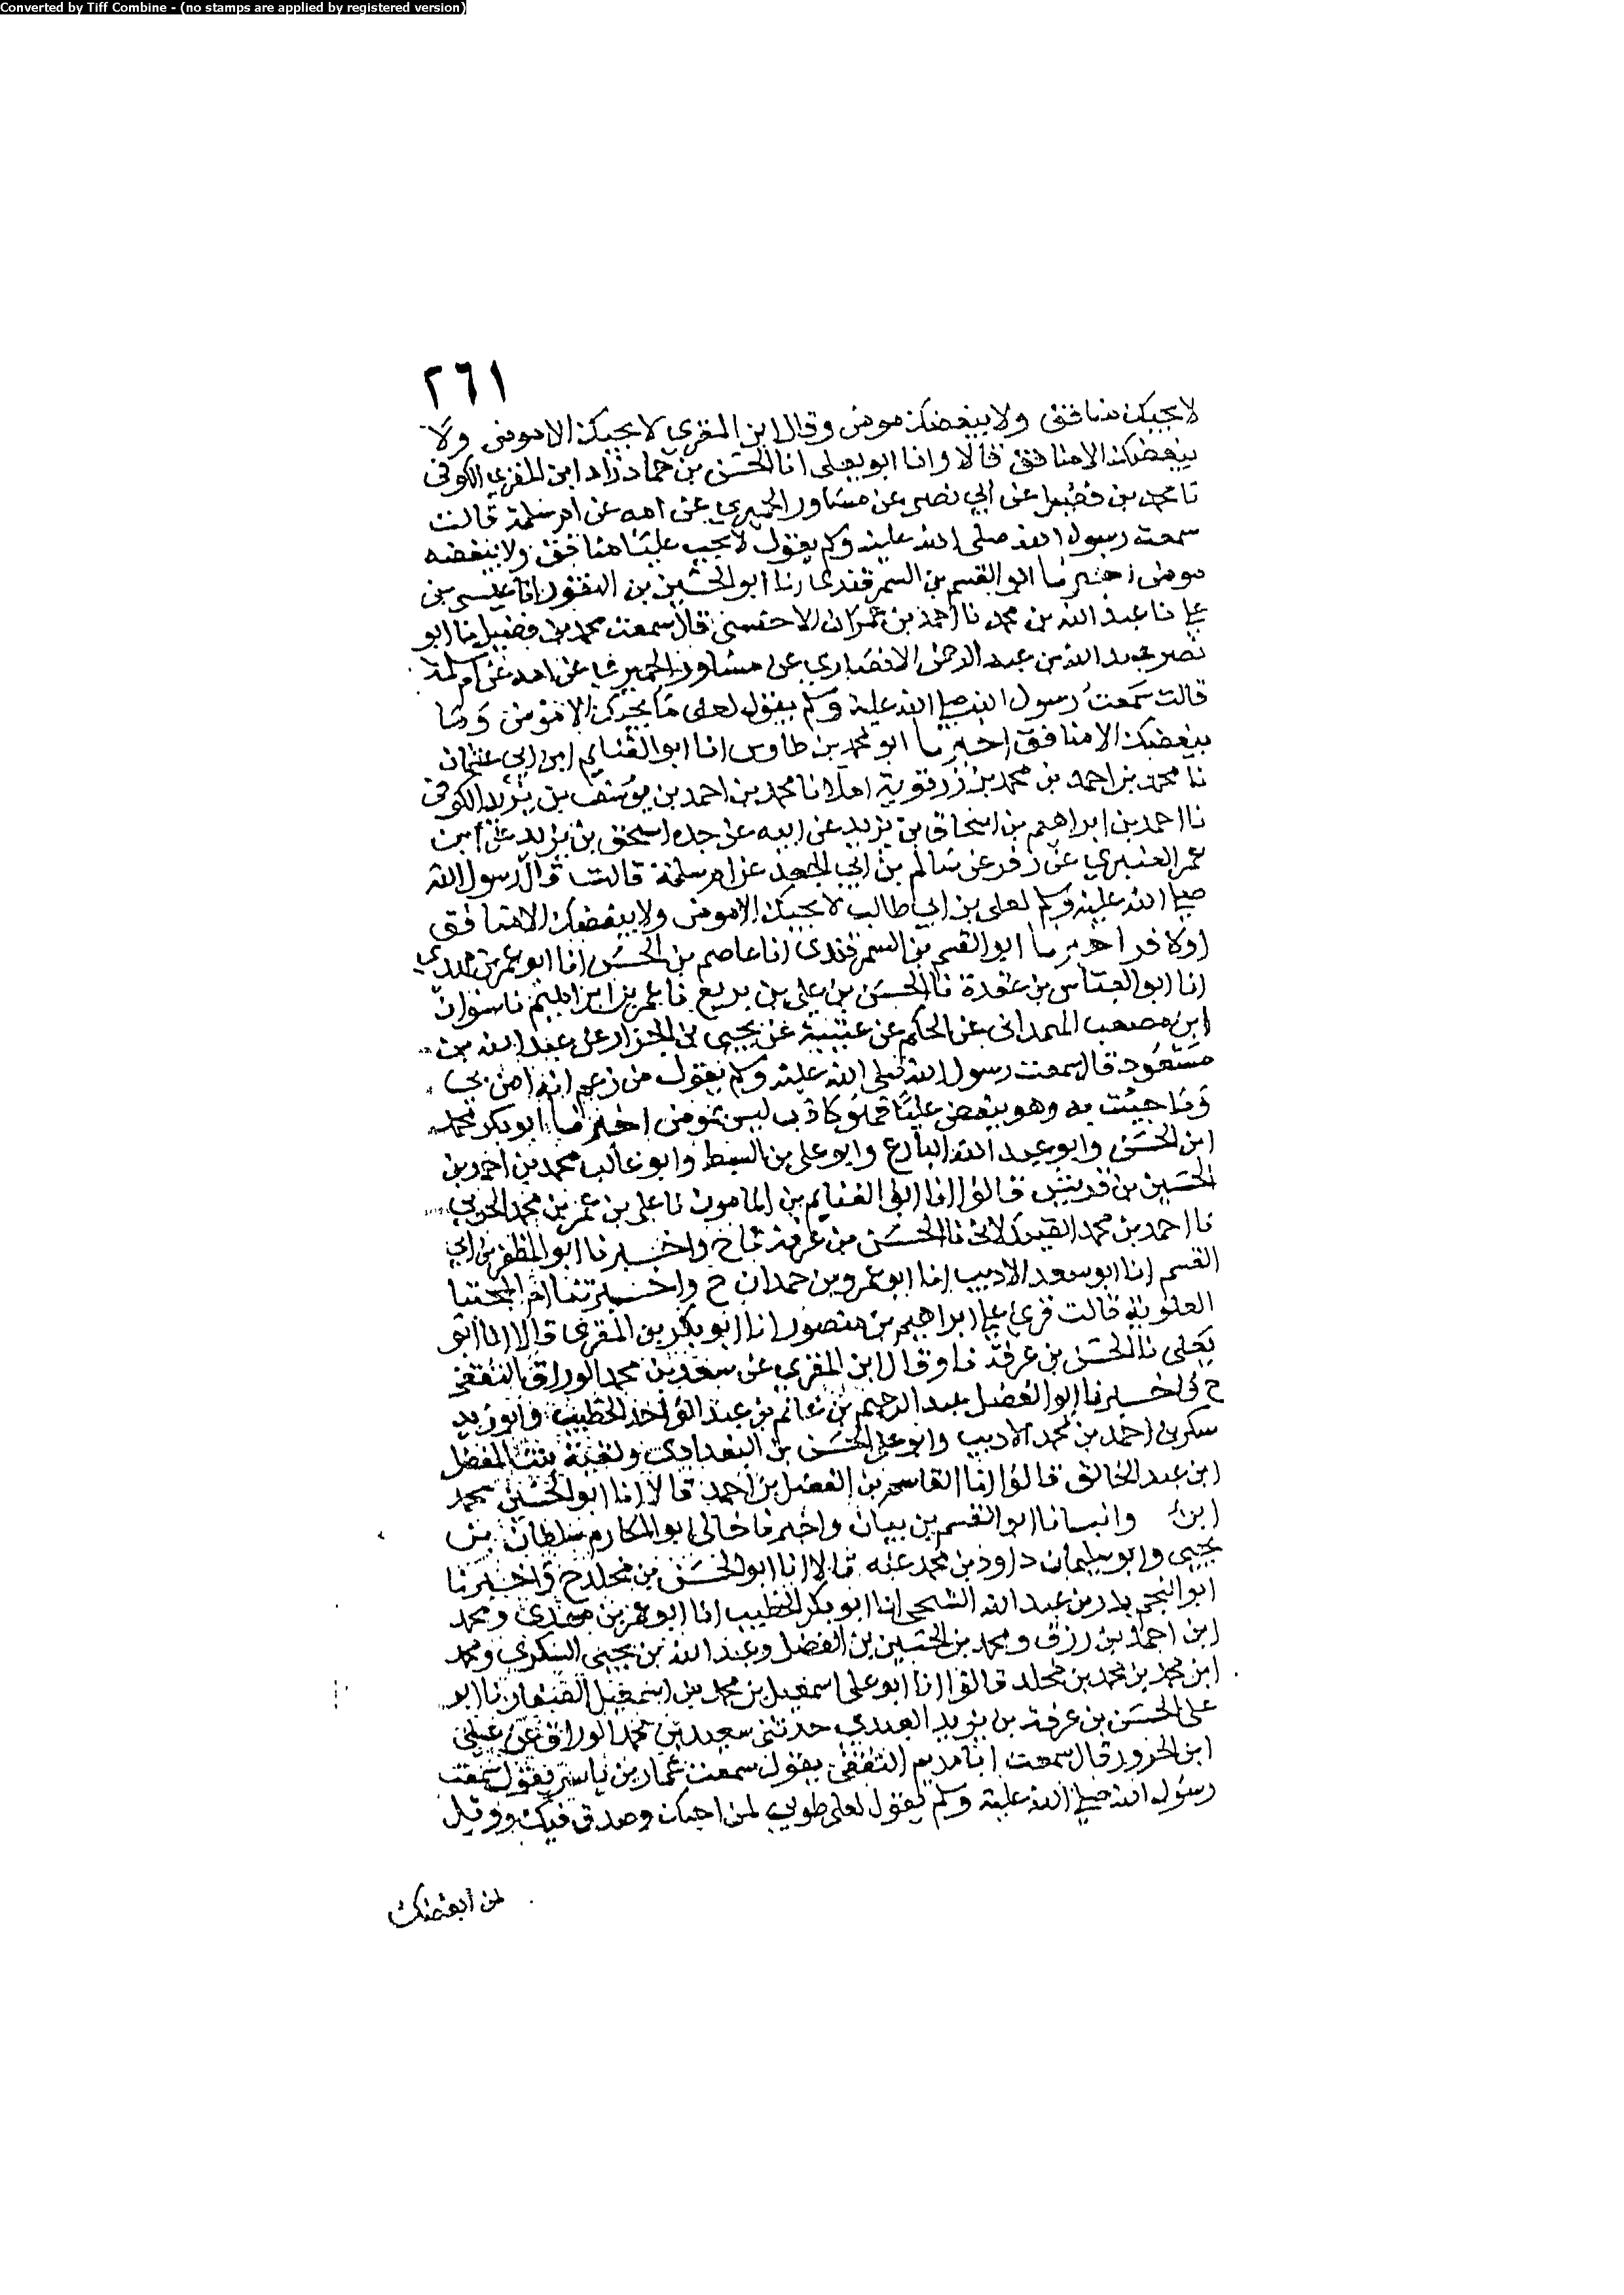 Converted by Tiff Combine - (no stamps are applied by registered version)
٢٦١
لا يحبك منافق ولا يبغضك مومن وقال ابن المقري لا يحبك الا مومن ولا
يبغضك الا منافق قالا وانا ابو يعلى انا الحسن بن حماد زاد ابن المقري الكوفي
نا محمد بن فضيل عن ابي نصر عن مساور الحميري عن امه عن ام سلمة قالت
سمعت رسول الله صلى الله عليه وسلم يقول لا يحب عليا منافق ولا يبغضه
مومن اخبرنا ابو القسم بن السمرقندي انا ابو الحسين بن النقور انا عيسى بن
علي نا عبد الله بن محمد نا احمد بن عمران الاخنسي قال سمعت محمد بن فضيل نا ابو
نصر عبد الله بن عبد الرحمن الانصاري عن مساور الحميري عن امه عن ام سلمة
قالت سمعت رسول الله صلى الله عليه وسلم يقول لعلي ما يحبك الا مومن وما
يبغضك الا منافق اخبرنا ابو محمد بن طاوس انا ابو الغنايم ابن ابي عثمان
نا محمد بن احمد بن محمد بن زرقوية املا نا محمد بن احمد بن يوسف بن يزيد الكوفي
نا احمد بن ابراهيم بن اسحاق بن يزيد عن ابيه عن جده اسحق بن يزيد عن ابن
عمر العنبري عن زفر عن سالم بن ابي الجعد عن ام سلمة قالت قال رسول الله
صلى الله عليه وسلم لعلي بن ابي طالب لا يحبك الا مومن ولا يبغضك الا منافق
او كافر اخبرنا ابو القسم بن السمرقندي انا عاصم بن الحسن انا ابو عمر بن مهدي
انا ابو العباس بن عقدة نا الحسن بن علي بن بزيع نا عمر بن ابراهيم نا سوار
ابن مصعب الهمداني عن الحكم عن عتيبة عن يحيى بن الجزار عن عبد الله بن
مسعود قال سمعت رسول الله صلى الله عليه وسلم يقول من زعم انه امن بي
وما جيئت به وهو يبغض عليا فهو كاذب ليس بمومن اخبرنا ابو بكر محمد
ابن الحسن وابو عبد الله البارع وابو علي بن السبط وابو غالب محمد بن احمد بن
الحسين بن قريش قالوا انا ابو الغنايم بن المامون نا علي بن عمر بن محمد الحربي
نا احمد بن محمد الصيدلاني نا الحسن بن عرفة ح واخبرنا ابو المظفر بن ابي
القسم انا ابو سعد الاديب انا ابو عمرو بن حمدان ح واخبرتنا ام المجتبا
العلوية قالت قري علي ابراهيم بن منصور انا ابو بكر بن المقري قالا انا ابو
يعلى نا الحسن بن عرفة نا وقال ابن المقري عن سعيد بن محمد الوراق الثقفي
ح واخبرنا ابو الفضل عبد الرحيم بن غانم بن عبد الواحد الخطيب وابو زيد
سكر بن احمد بن محمد الاديب وابو علي الحسن بن البغدادي ولقية بنت المفضل
ابن عبد الخالق قالوا انا القاسم بن الفضل بن احمد قالا انا ابو الحسين محمد
ابن وانبانا ابو القسم بن بيان واخبرنا خالي ابو المكارم سلطان بن
يحيى وابو سليمان داود بن محمد عنه قالا انا ابو الحسن بن مخلد ح واخبرنا
ابو النجم بدر بن عبد الله الشيحي انا ابو بكر الخطيب انا ابو عمر بن مهدي ومحمد
ابن احمد بن رزق ومحمد بن الحسين بن الفضل وعبد الله بن يحيى السكري ومحمد
ابن محمد بن محمد بن مخلد قالوا انا ابو علي اسمعيل بن محمد بن اسمعيل الصفار نا ابو
علي الحسن بن عرفة بن يزيد العبدي حدثني سعيد بن محمد الوراق عن علي
ابن الحزور قال سمعت ابا مريم الثقفي يقول سمعت عمار بن ياسر يقول سمعت
رسول الله صلى الله عليه وسلم يقول لعلي طوبى لمن احبك وصدق فيك وويل
لمن ابغضك